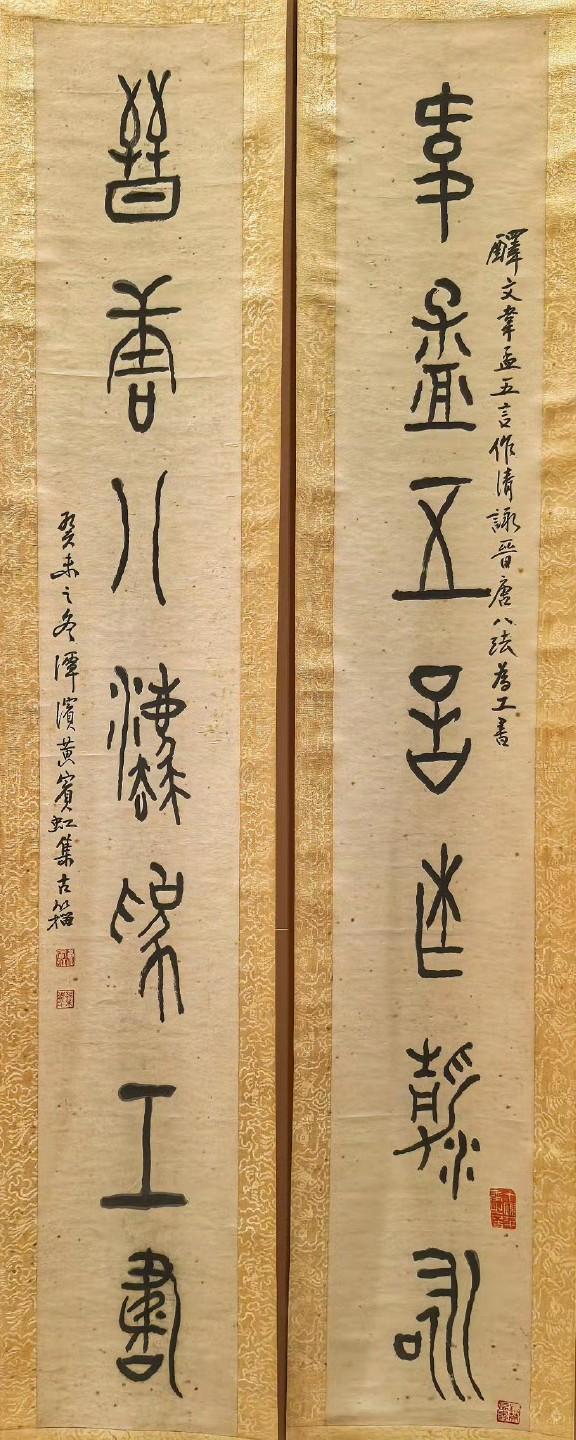 韋孟五言作清詠
釋文韋孟五言作清詠晉唐八法為工書
晉唐八法為工書
癸未之冬潭濱黃賓虹集古籀